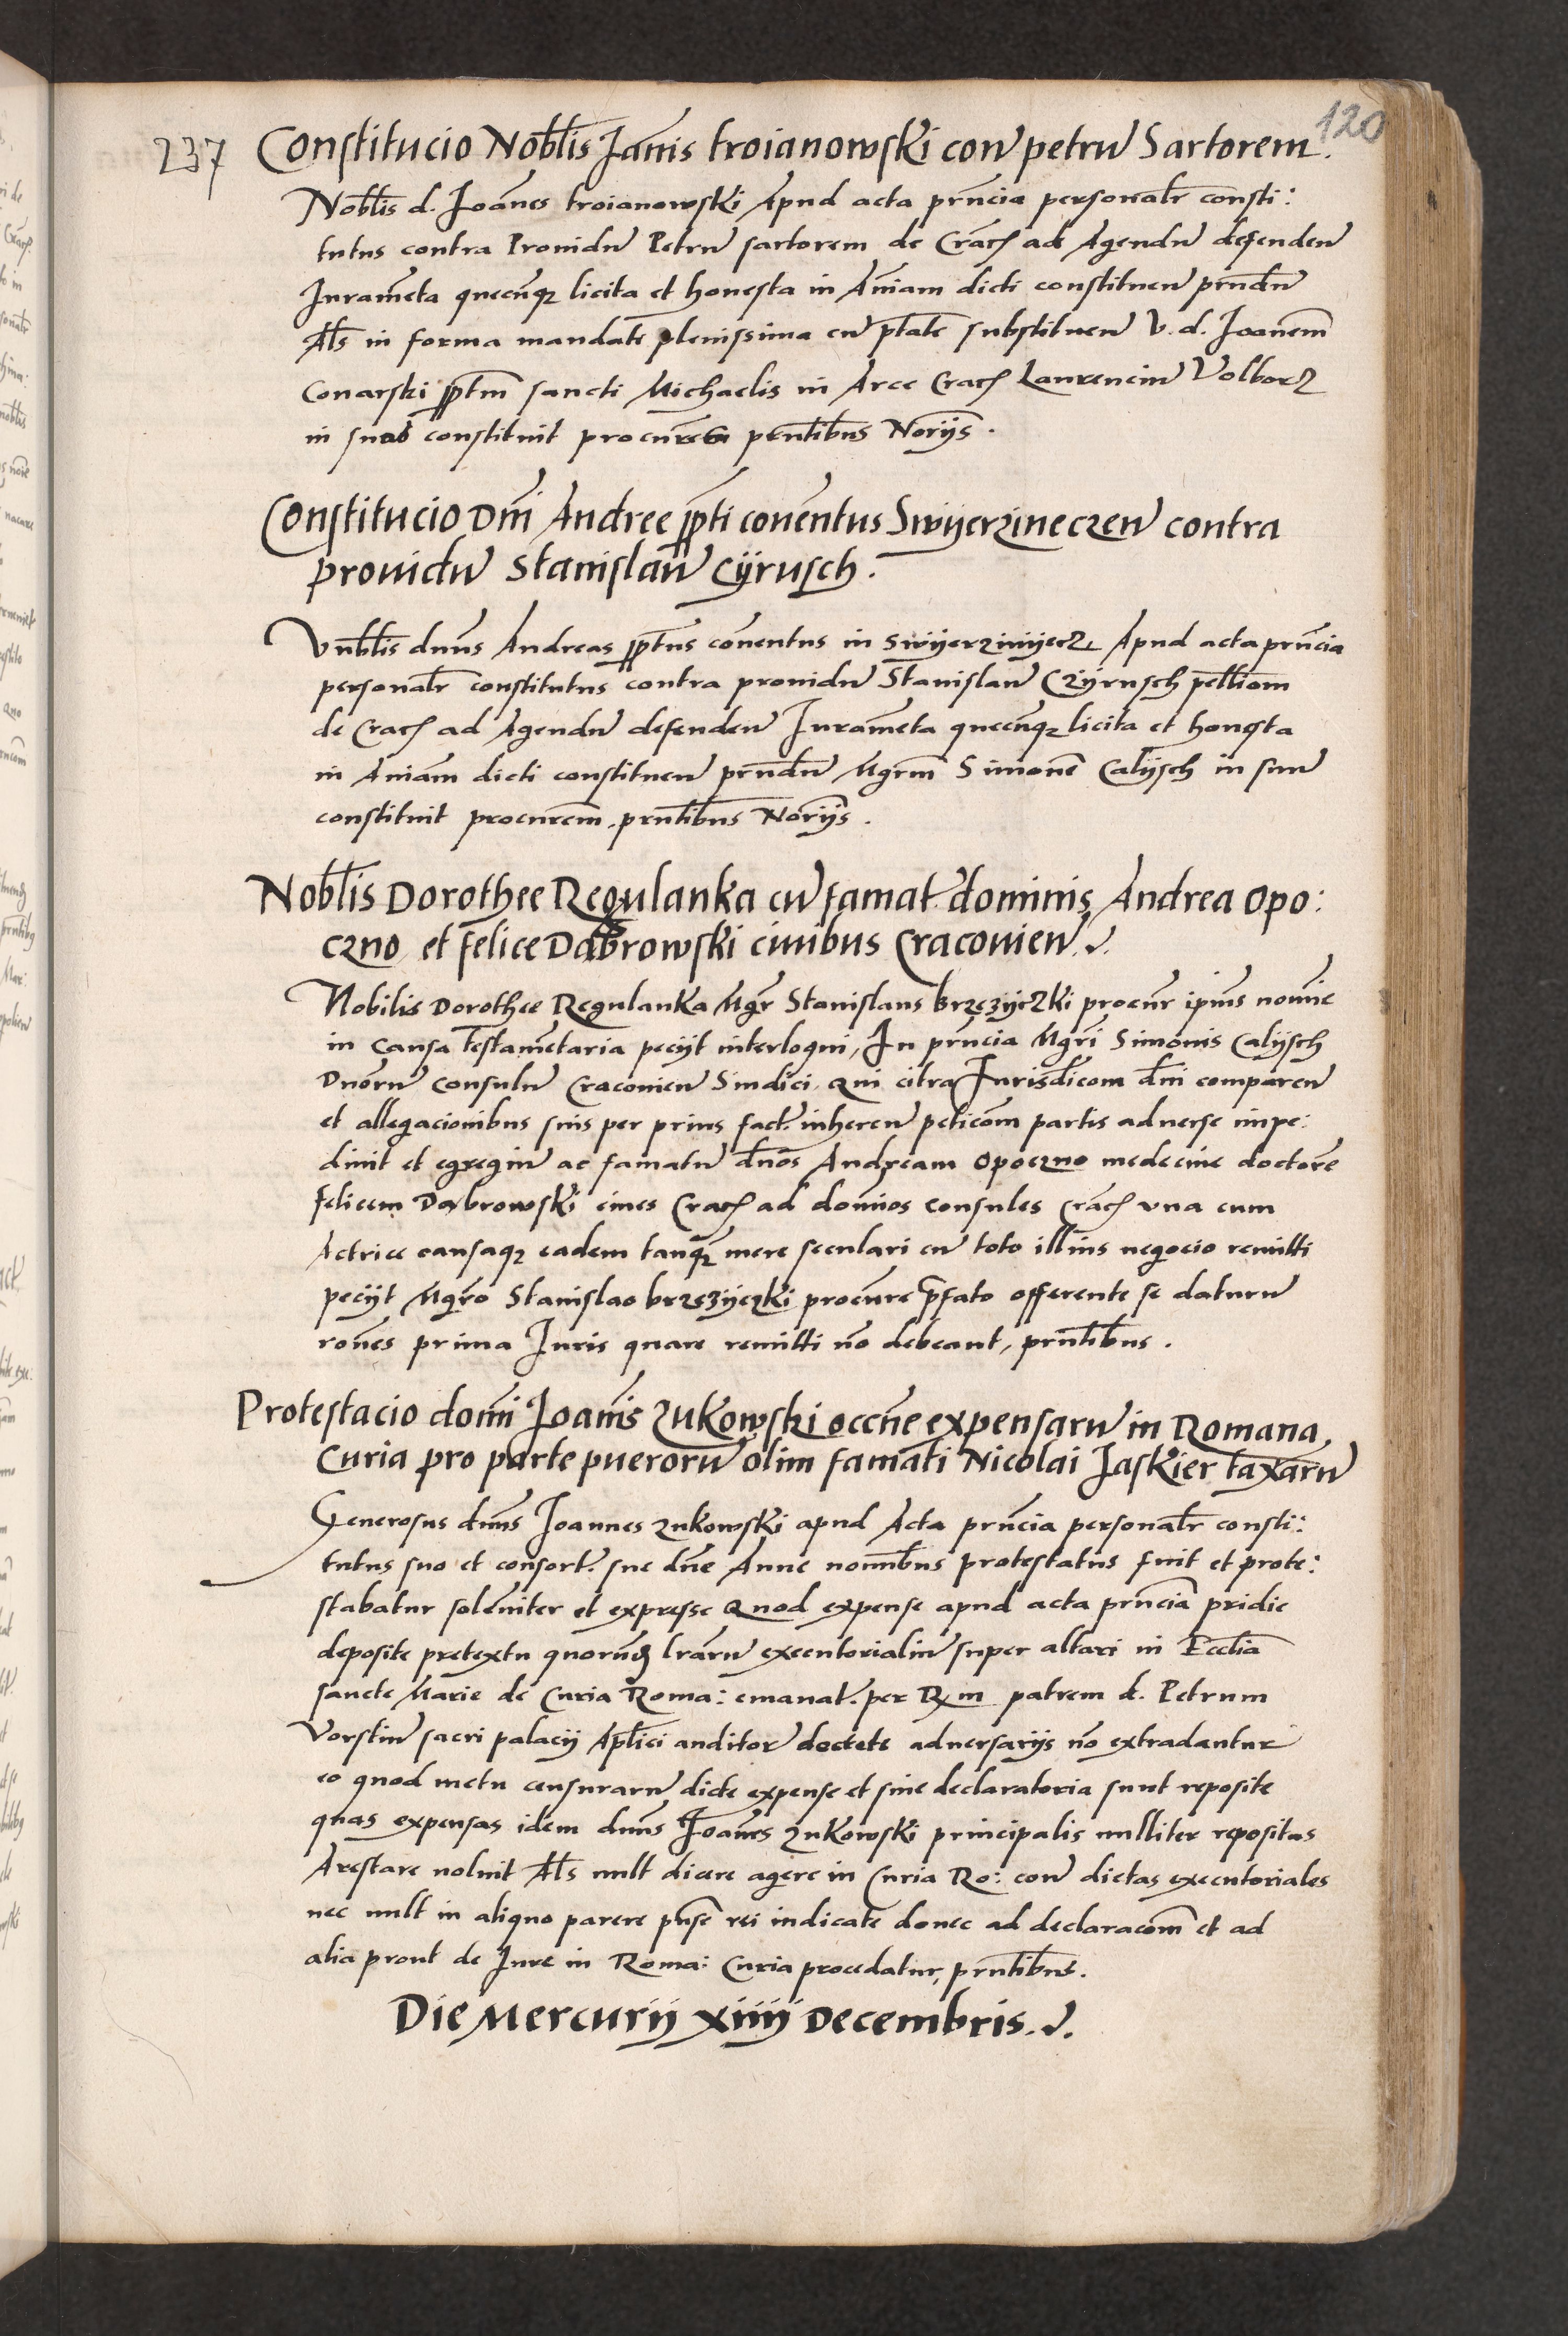 120
237 Constitucio Nobłis Janis troianowski con petru Sartorem.
Nobłis d. Joānes troianowski Apud acta prn̄cia personałr consti:
tutus contra Prouidu Petru sartorem de Crac ad Agendu defenden
Juramēta quecūq licita et honesta in Aīam dicti constituen prn̄du
Ałs in forma mandate plenissima cu ptate substituen V. d. Joanem
Conarski pptm sancti Michaelis in Arce Crac Laurenciu Volborz
in suos constituit procurem prn̄tibus Norijs.
Constitucio Dni Andree ppti conentus Swyerzineczen contra
prouidu Stanislau Cÿrusch.
Vnbłis duns Andreas pptus conuentus in swÿerzinÿecz Apud acta prn̄cia
personałr constitutus contra prouidu Stanislau Czÿrusch pelliom
de Crac ad Agendu defenden Juramēta quecūq licita et honesta
in Aniam dicti constituen prn̄du Mgrm Simonē Calÿsch in suu
constituit procurem prn̄tibus Norijs.
Nobłis Dorothee Regulanka cu famat. dominis Andrea Opo:
czno et felice Dabrowski ciuibus Cracouien.
Nobilis Dorothee Regulanka Mgr Stanislaus brzezÿczki procur ipius nomie
in Causa Testamētaria pecÿt interloqui, In prn̄cia Mgri Simonis Calÿsch
Dnoru Consulu Cracouien Sindici, qui citra Jurisdicom dni comparen
et allegacionibus suis per prius fact. inheren peticom partis aduerse impe:
diuit et egregiu ac famatu dnos Andream Opoczno medecine doctore
felicem Dabrowski ciues Crac ad domios consules Crac vna cum
Actrice causaq eadem tanq mere seculari cu toto illius negocio remitti
pecÿt Mgro Stanislao brzezÿczki procure pfato offerente se daturu
rones prima Juris quare remitti no debeant, prn̄tibus.
Protestacio domi Joanis Zukowski occne expensaru in Romana
Curia pro parte pueroru olim famati Nicolai Jaskier taxaru
Generosus duns Joannes zukowski apud Acta prn̄cia personałr consti:
tutus suo et consort. sue dne Anne nomibus protestatus fuit et prote:
stabatur solēniter et expresse Quod expense apud acta prn̄cia pridie
deposite pretextu quorud lraru executorialiu super altari in Ecclia
sancte Marie de Curia Roma: emanat. per R m patrem d. Petrum
Vorstiu sacri palacij Aplici auditor decrete aduersarijs no extradantur
eo quod metu censuraru dicte expense et sine declaratoria sunt reposite
quas expensas idem duns Joanes zukowski principalis nulliter repositas
Arestare noluit Ałs vult dicere agere in Curia Ro: con dictas executoriales
nec vult in aliquo parere pnse rei iudicate donec ad declaracom et ad
alia prout de Jure in Roma: Curia procedatur, prn̄tibus.
Die Mercurij xiiij Decembris.